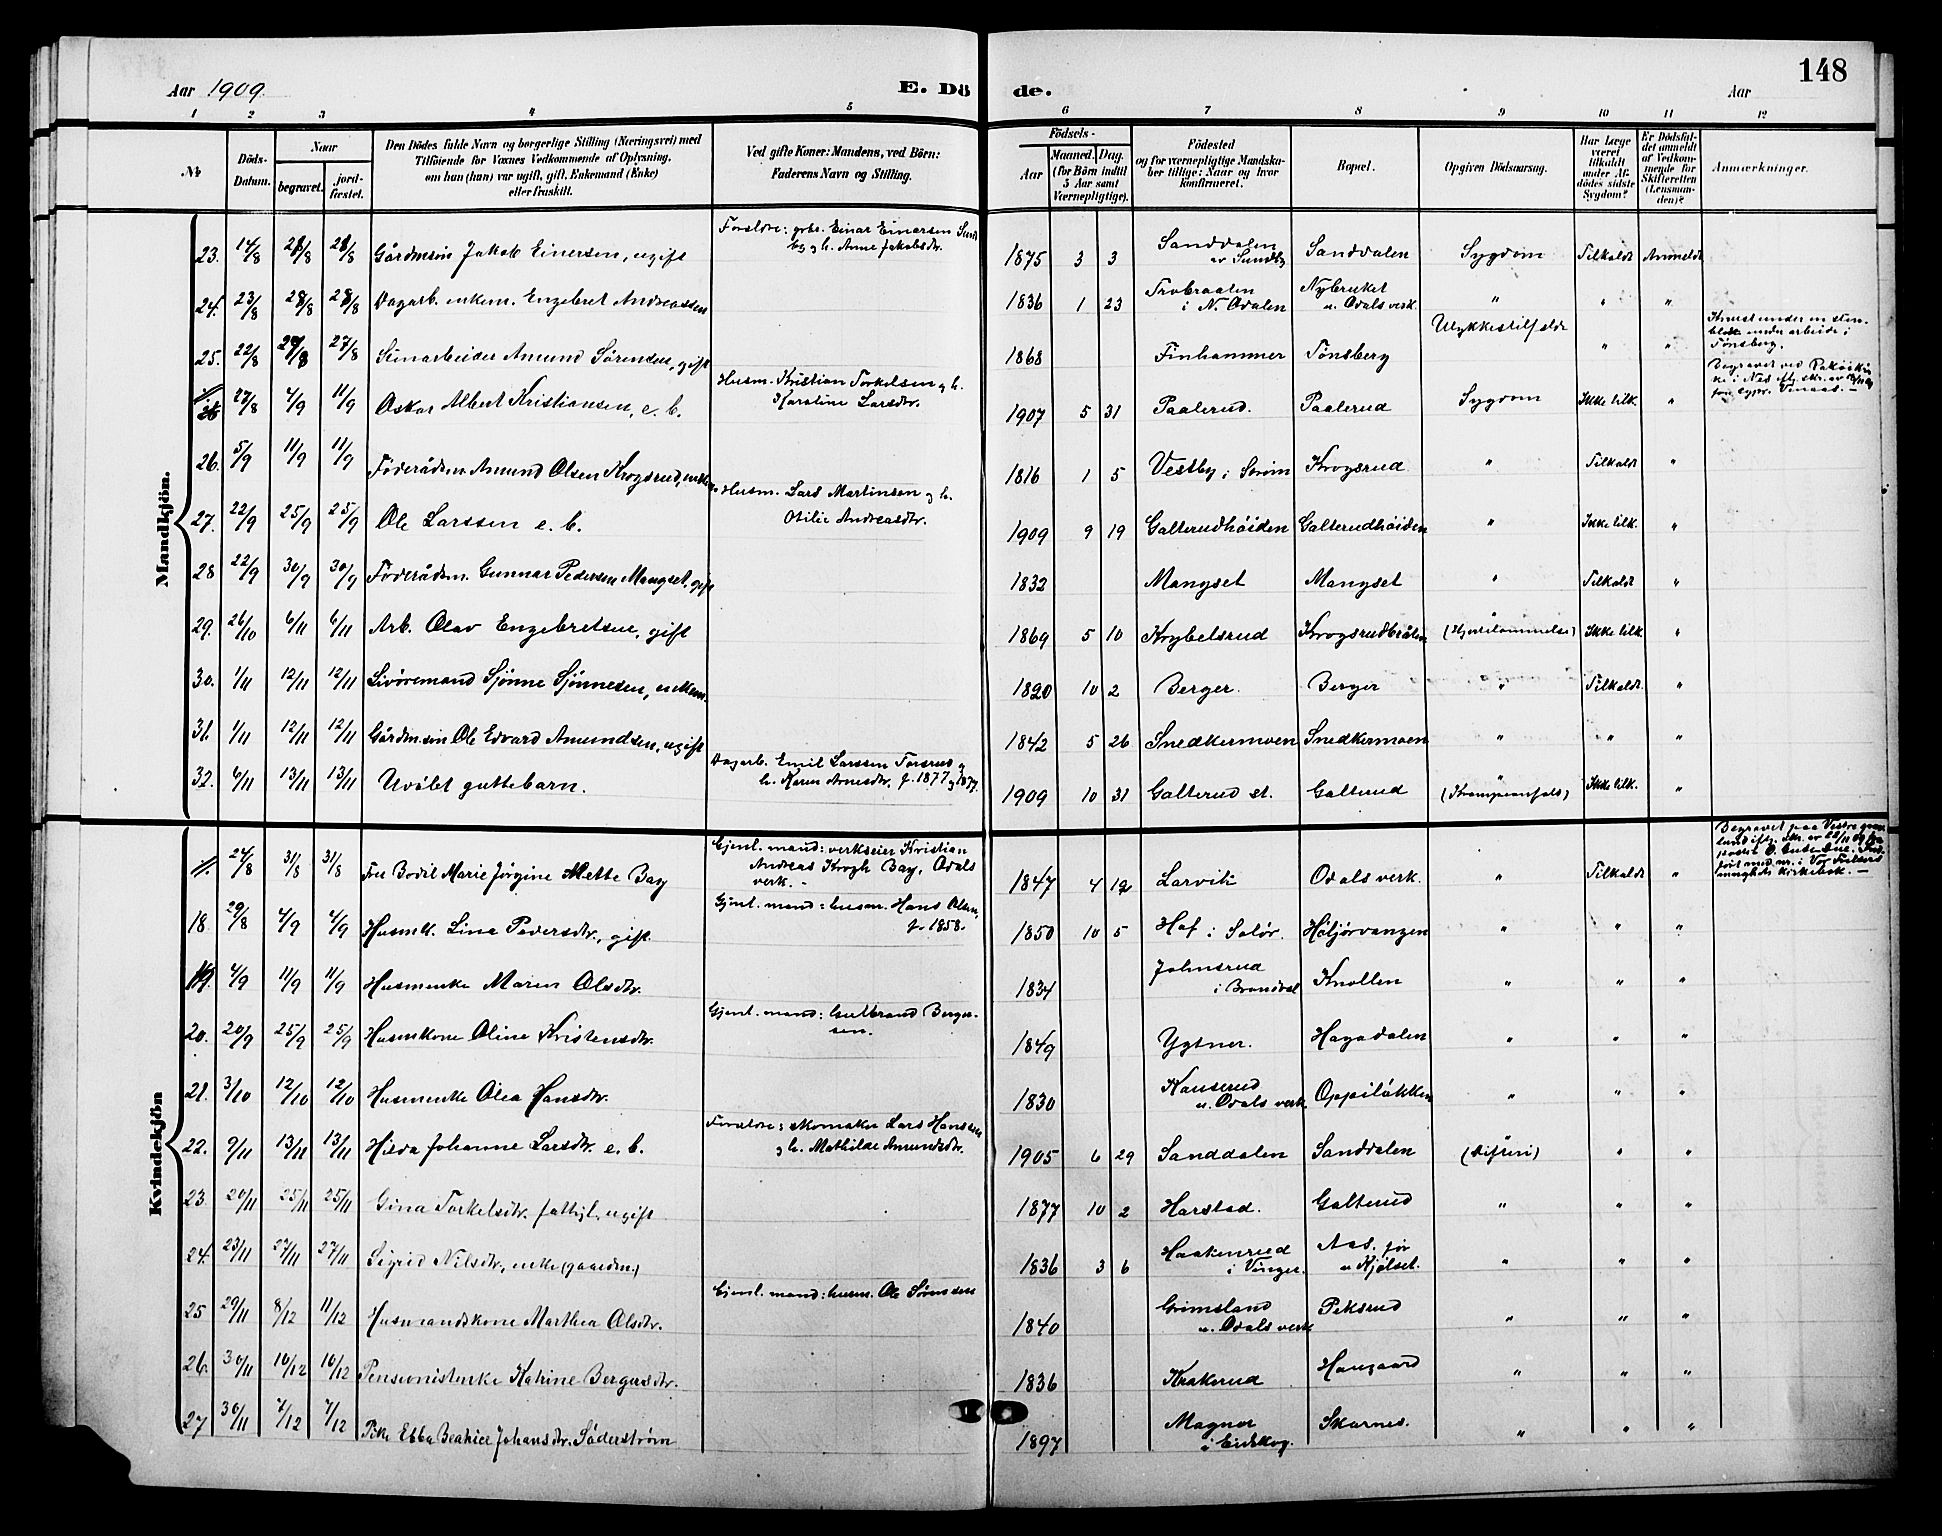 148
Aar 1909.
E. Dö de.
Aar
1 2 3 4 5 6 7 8 9 10 11 12
No
Döds-
Datum.
Naar
begravet.
jord-
fæstet.
Den Dödes fulde Navn og borgerlige Stilling (Næringsvei) med
Tilföiende for Voxnes Vedkommende af Oplysning,
om han (hun) var ugift, gift, Enkemand (Enke)
eller fraskilt.
Ved gifte Koner: Mandens, ved Börn:
Faderens Navn og Stilling.
Födsels-
Aar
Maaned. Dag.
(for Börn indtil
5 Aar samt
Værnepligtige).
Födested
og for værnepligtige Mandska-
ber tillige: Naar og hvor
konfirmeret.
Bopæl.
Opgiven Dödsaarsag.
Har Læge
været
tilkaldt
under Af-
dödes sidste
Sygdom?
Er Dödsfal-
det anmeldt
af Vedkom-
mende for
Skifteretten
(Lensman-
den)?
Anmærkninger.
Mandkjön.
Forældre: grbr. Einar Einarsen Sund
by og h. Anne Jakobsdtr.
23. 14/8 21/8 21/8 Gårdmsön Jakob Einersen, ugift 1875 3 3 Sanddalen
av Sundby Sanddalen Sygdom Tilkaldt Anmeldt
24. 23/8 28/8 28/8 Dagarb. enkem. Engebret Andreassen 1836 1 23
i N. Odalen Nybruket
u. Odals verk. " " "
25. 22/8 29/8 27/8 Stenarbeider Amund Sørensen, gift 1868 Finhammer Tønsberg Ulykkestilfælde " "
Knust under en sten-
blok under arbeide i
Tønsberg.
Husm. Kristian Torkelsen og h.
Karoline Larsdtr.
27/8 4/9 11/9 Oskar Albert Kristiansen, e. b. 1907 5 31 Paalerud. Paalerud Sygdom Ikke tilk. "
Begravet ved
i Nes
26. 5/9 11/9 11/9 Föderådsm. Amund Olsen Krogsrud, enkem. 1816 1 5 Vestby i Sørum Krogsrud " Tilkaldt "
Husm. Lars Martinsen og h.
Otilie Andreasdtr.
27. 22/9 25/9 25/9 Ole Larssen e. b. 1909 9 19 Galterudhöiden Galterudhöiden " Ikke tilk. "
28 22/9 30/9 30/9 Föderådsm. Gunnar Pedersen Mangset, gift 1832 Mangset Mangset " Tilkaldt "
29. 26/10 6/11 6/11 Arb. Olav Engebretsen, gift 1869 5 10 Krybelsrud Krogsrudbråten (Hjertelammelse) Ikke tilk. "
30. 1/11 12/11 12/11 Livöremand Sjönne Sjönnesen, enkem. 1820 10 2 Berger. Berger " Tilkaldt. "
31. 1/11 12/11 12/11 Gårdmsön Ole Edvard Amundsen, ugift 1842 5 26 Snedkermoen Snedkermoen " " "
Dagarb. Emil Larssen Torsrud og
h. Karen Arnesdtr. f. 1877 og 1877.
32. 6/11 13/11 13/11 Udöbt guttebarn. 1909 10 31 Galterud st. Galterud (Krampeanfald) Ikke tilk. "
Kvindekjön
Gjenl. mand: verkseier Kristian
Andreas Krogh Bay, Odals
verk. -
24/8 31/8 31/8 Fru Bodil Marie Jörgine Mette Bay 1847 4 12 Larvik Odals verk. " Tilkaldt "
Begravet paa Vestre grav-
lund
Vor Frelsers
menigheds kirkebok. -
Gjenl. mand: husm. Hans Olsen,
f. 1858.
18. 29/8 4/9 4/9 Husmk. Lina Pedersdtr., gift. 1850 10 5 Hof i Solør. Höljörvangen " " "
19. 4/9 11/9 11/9 Husmenke Maren Olsdtr. 1834 Johnsrud
i Brandval Knollen " " "
Gjenl. mand: Gulbrand Berger-
sen.
20. 20/9 25/9 25/9 Husmkone Oline Kristensdtr. 1849 Ygtner. Hagadalen " " "
21. 3/10 12/10 12/10 Husmenke Olea Hansdtr. 1830 Kanserud
u. Odals verk. Oppilökken " " "
Forældre: skomaker Lars Hanssen
og h. Mathilde Amundsdtr.
22. 9/11 13/11 13/11 Hilda Johanne Larsdtr. e. b. 1905 6 29 Sanddalen Sanddalen (Difteri) " "
23. 20/11 25/11 25/11 Gina Torkelsdtr. fattigl., ugift 1877 10 2 Harstad. Galterud " " "
24. 23/11 27/11 27/11 Sigrid Nilsdtr., enke (gaardm.) 1836 3 6 Haakenrud
i Vinger. Aas, før
u Kjölset. " " "
Gjenl. mand: husm. Ole Sörenssen
25 29/11 8/12 11/12 Husmandskone Marthea Olsdtr. 1840 Grimsland
u. Odals verk Peksrud " " "
26. 30/11 10/12 10/12 Pensionistenke Katrine Bergersdtr. 1836 Krakerud Haugaard " " "
27 30/11 7/12 7/12 Pike Ebba Beatrice Johansdtr. Söderström 1897 Magnor
i Eidskog. Skarnes. " " "